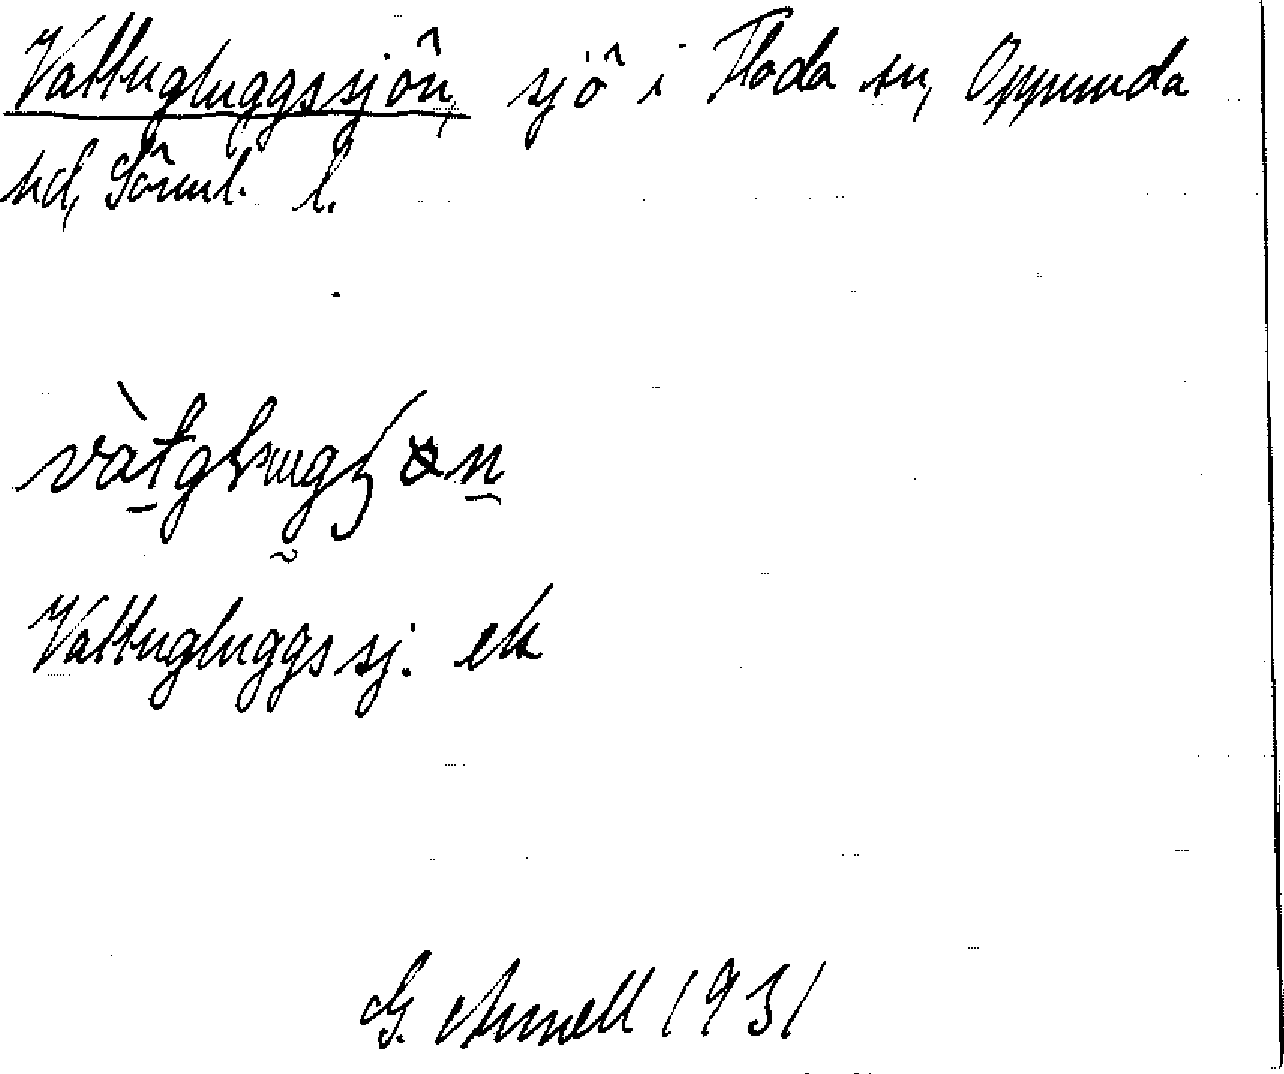 Vattugluggssjön, sjö i Floda sn, Oppunda
hd, Sörml. l.
Vattugluggssj. ek
G. Annell 1931